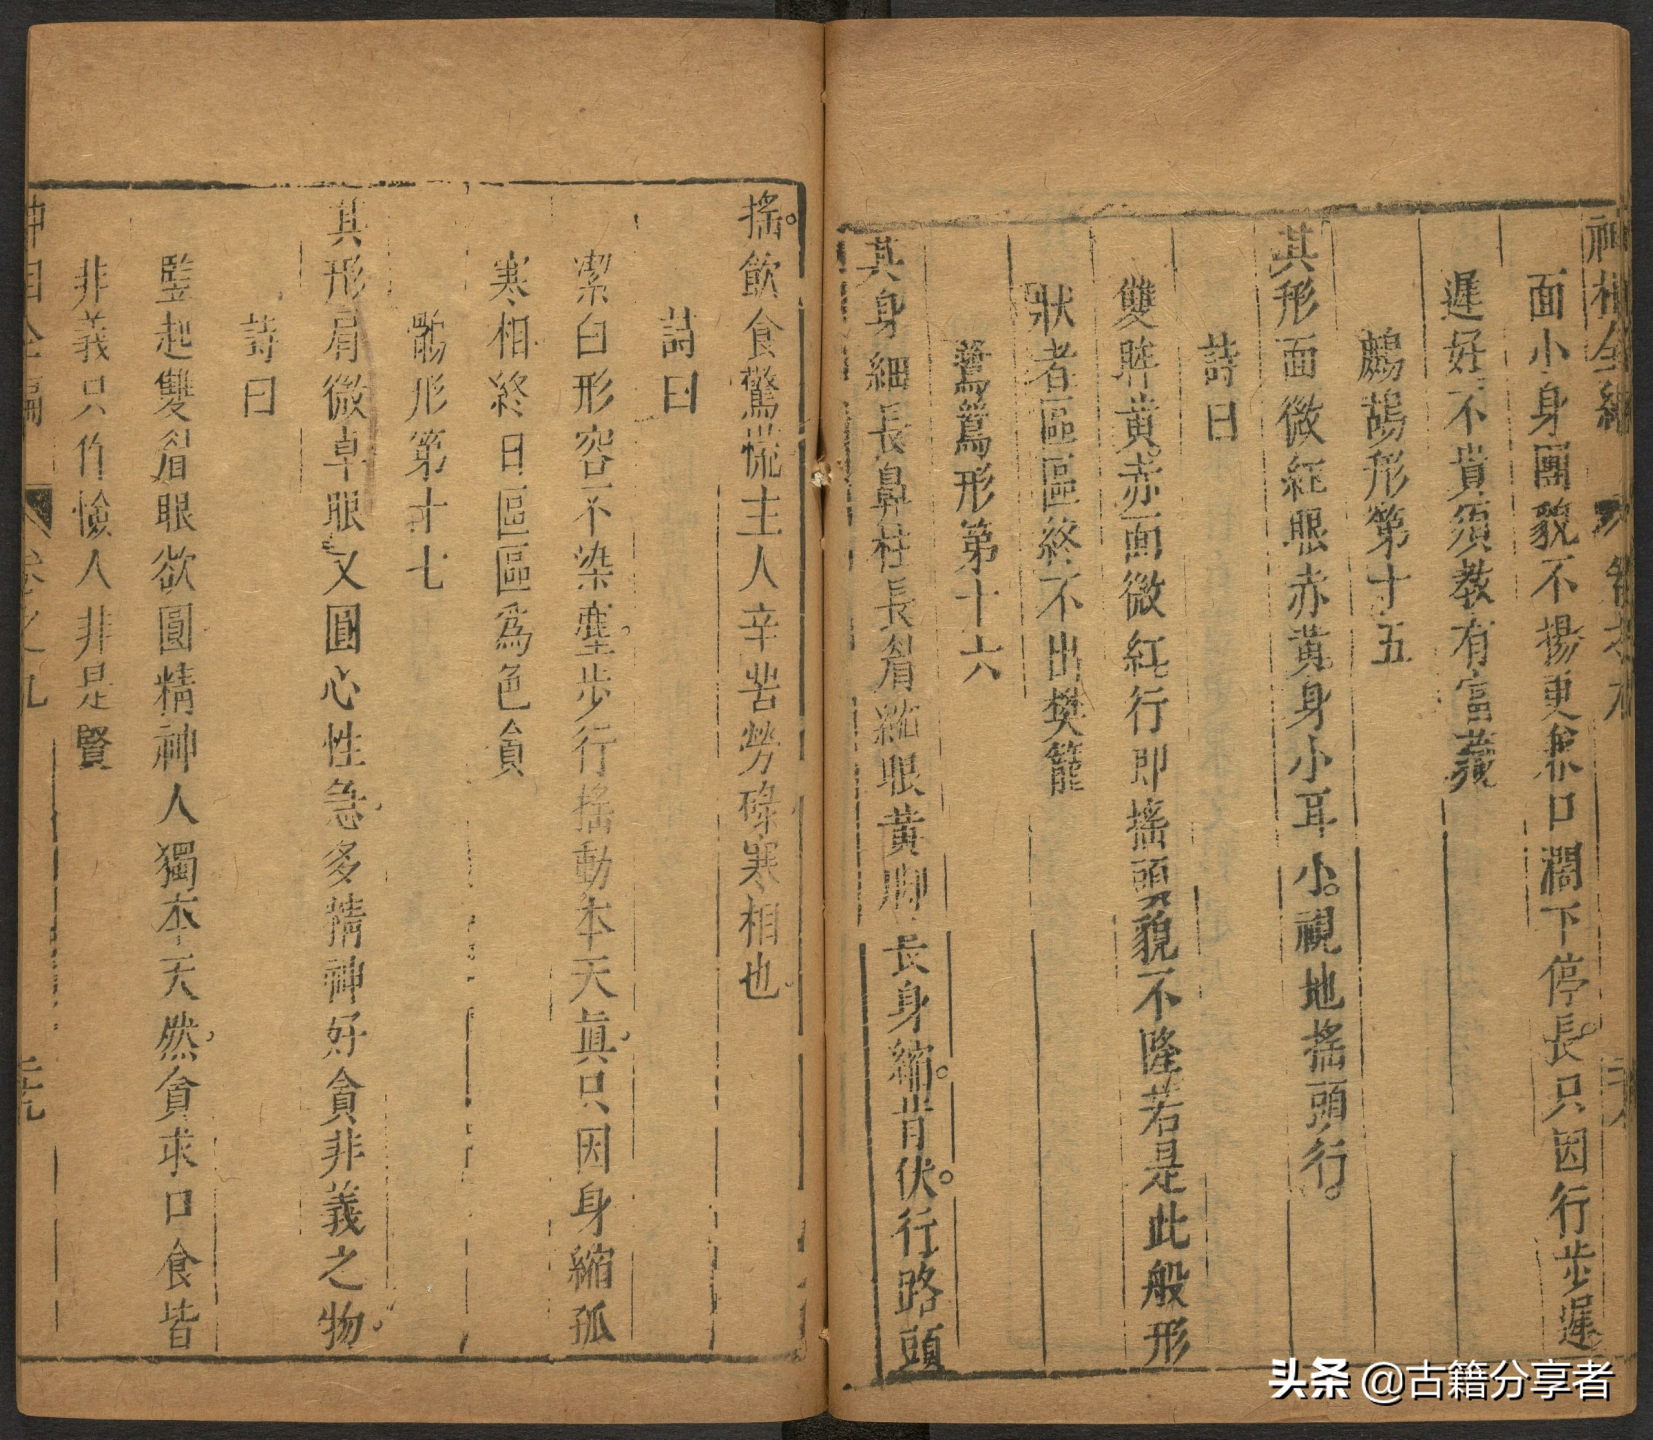 神相全編
面小身團貌不揚更兼口濶下停長只因行步遲
遲好不貴須教有富藏
鷓鴣形第十五
其形面微紅眼赤黃身小耳小視地搖頭行
詩曰
雙眸黃赤面微紅行即搖頭貌不隆若是此般形
狀者區區終不出樊籠
鷺鷥形第十六
其身細長鼻柱長眉縱眼黃脚長身縮肯伏行路頭
搖飲食驚慌主人辛苦勞碌寒相也
詩曰
潔白形容不染塵步行搖動本天眞只因身縮孤
寒相終日區區爲色貪
鶻形第十七
其形肩微卓眼又圓心性急多精神好貪非義之物
詩曰
竪起雙眉眼欲圓精神人獨本天然貪求口食皆
非義只作憸人非是賢
神相全編 卷之九 二十九
头条 @古籍分享者